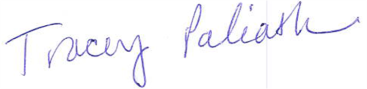 Tracey Paliath